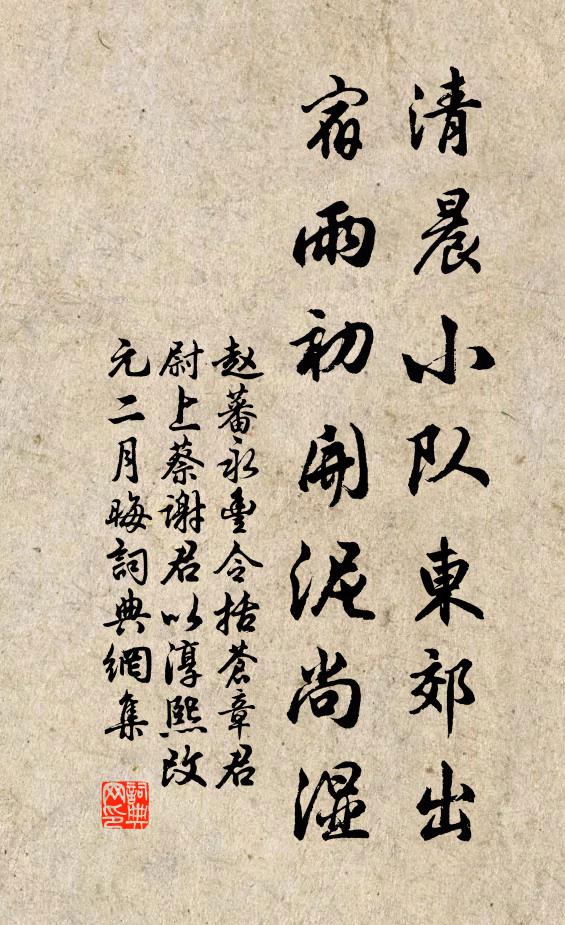 清晨小队東郊出
宿雨初開泥尚湿
赵蕃永豊令括蒼章君
尉上蔡謝君以淳熙改
元二月晦詞典網集
詞典
网印